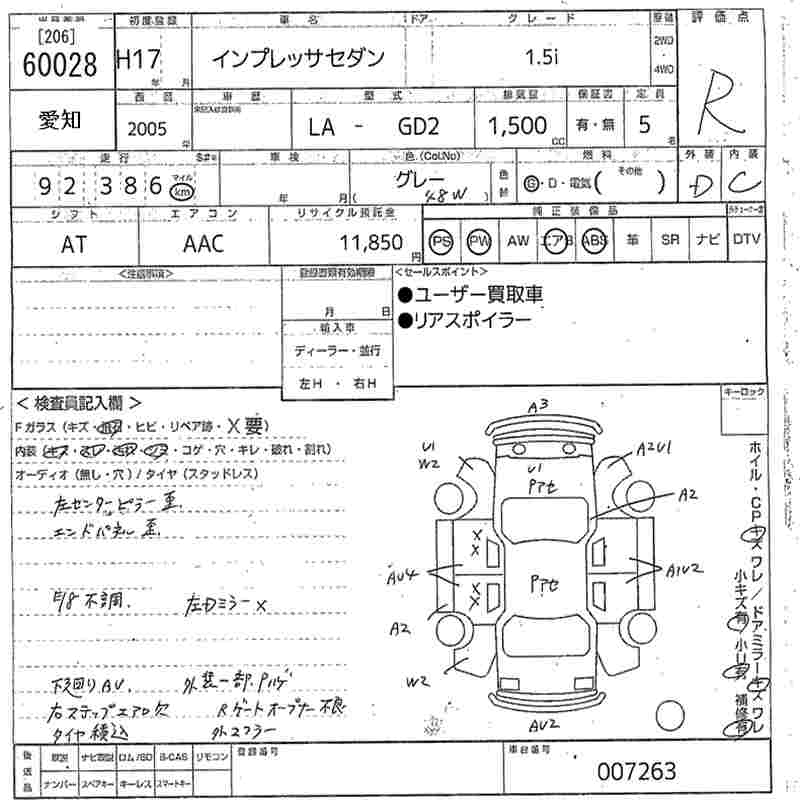 [206]
60028
初度登録
車名
ドア
グレード
駆動
評価点
H17
年
月
インプレッサセダン
1.5i
2WD
・
4WD
R
愛知
西暦
車歴
型式
排気量
保証書
定員
2005
年
LA - GD2
1,500
CC
有・無
5
名
走行
車検
色(Col.No)
燃料
外装
内装
92,386
マイル
km
年
月
グレー
48W
色替
G・D・電気(その他)
D
C
シフト
エアコン
リサイクル預託金
純正装備品
AT
AAC
11,850
円
PS
PW
AW
エアB
ABS
革
SR
ナビ
DTV
<注意事項>
登録書類有効期限
月
日
輸入車
ディーラー・並行
左H ・ 右H
<セールスポイント>
●ユーザー買取車
●リアスポイラー
キーロック
<検査員記入欄>
Fガラス(キズ・ ・ヒビ・リペア跡・X要)
内装( ・コゲ・穴・キレ・破れ・割れ)
オーディオ(無し・穴)/タイヤ(スタッドレス)
左センターピラー歪
エンドパネル歪
不調.
左Dミラー X
下回りAU.
外装一部.Pハゲ
右ステップエアロ欠
Rゲートオープナー不良
タイヤ積込
外マフラー
A3
U1
W2
A2U1
U1
Pアセ
A2
X
X
X
X
AU4
A1U2
Pアセ
A2
W2
AU2
ホイル・CPキズワレ/ドアミラーキズワレ
小キズ有/小U有 補修有
後送品
取説
ナビ取説
ロム/SD
B-CAS
リモコン
ナンバー
スペアキー
キーレス
スマートキー
登録番号
車台番号
007263